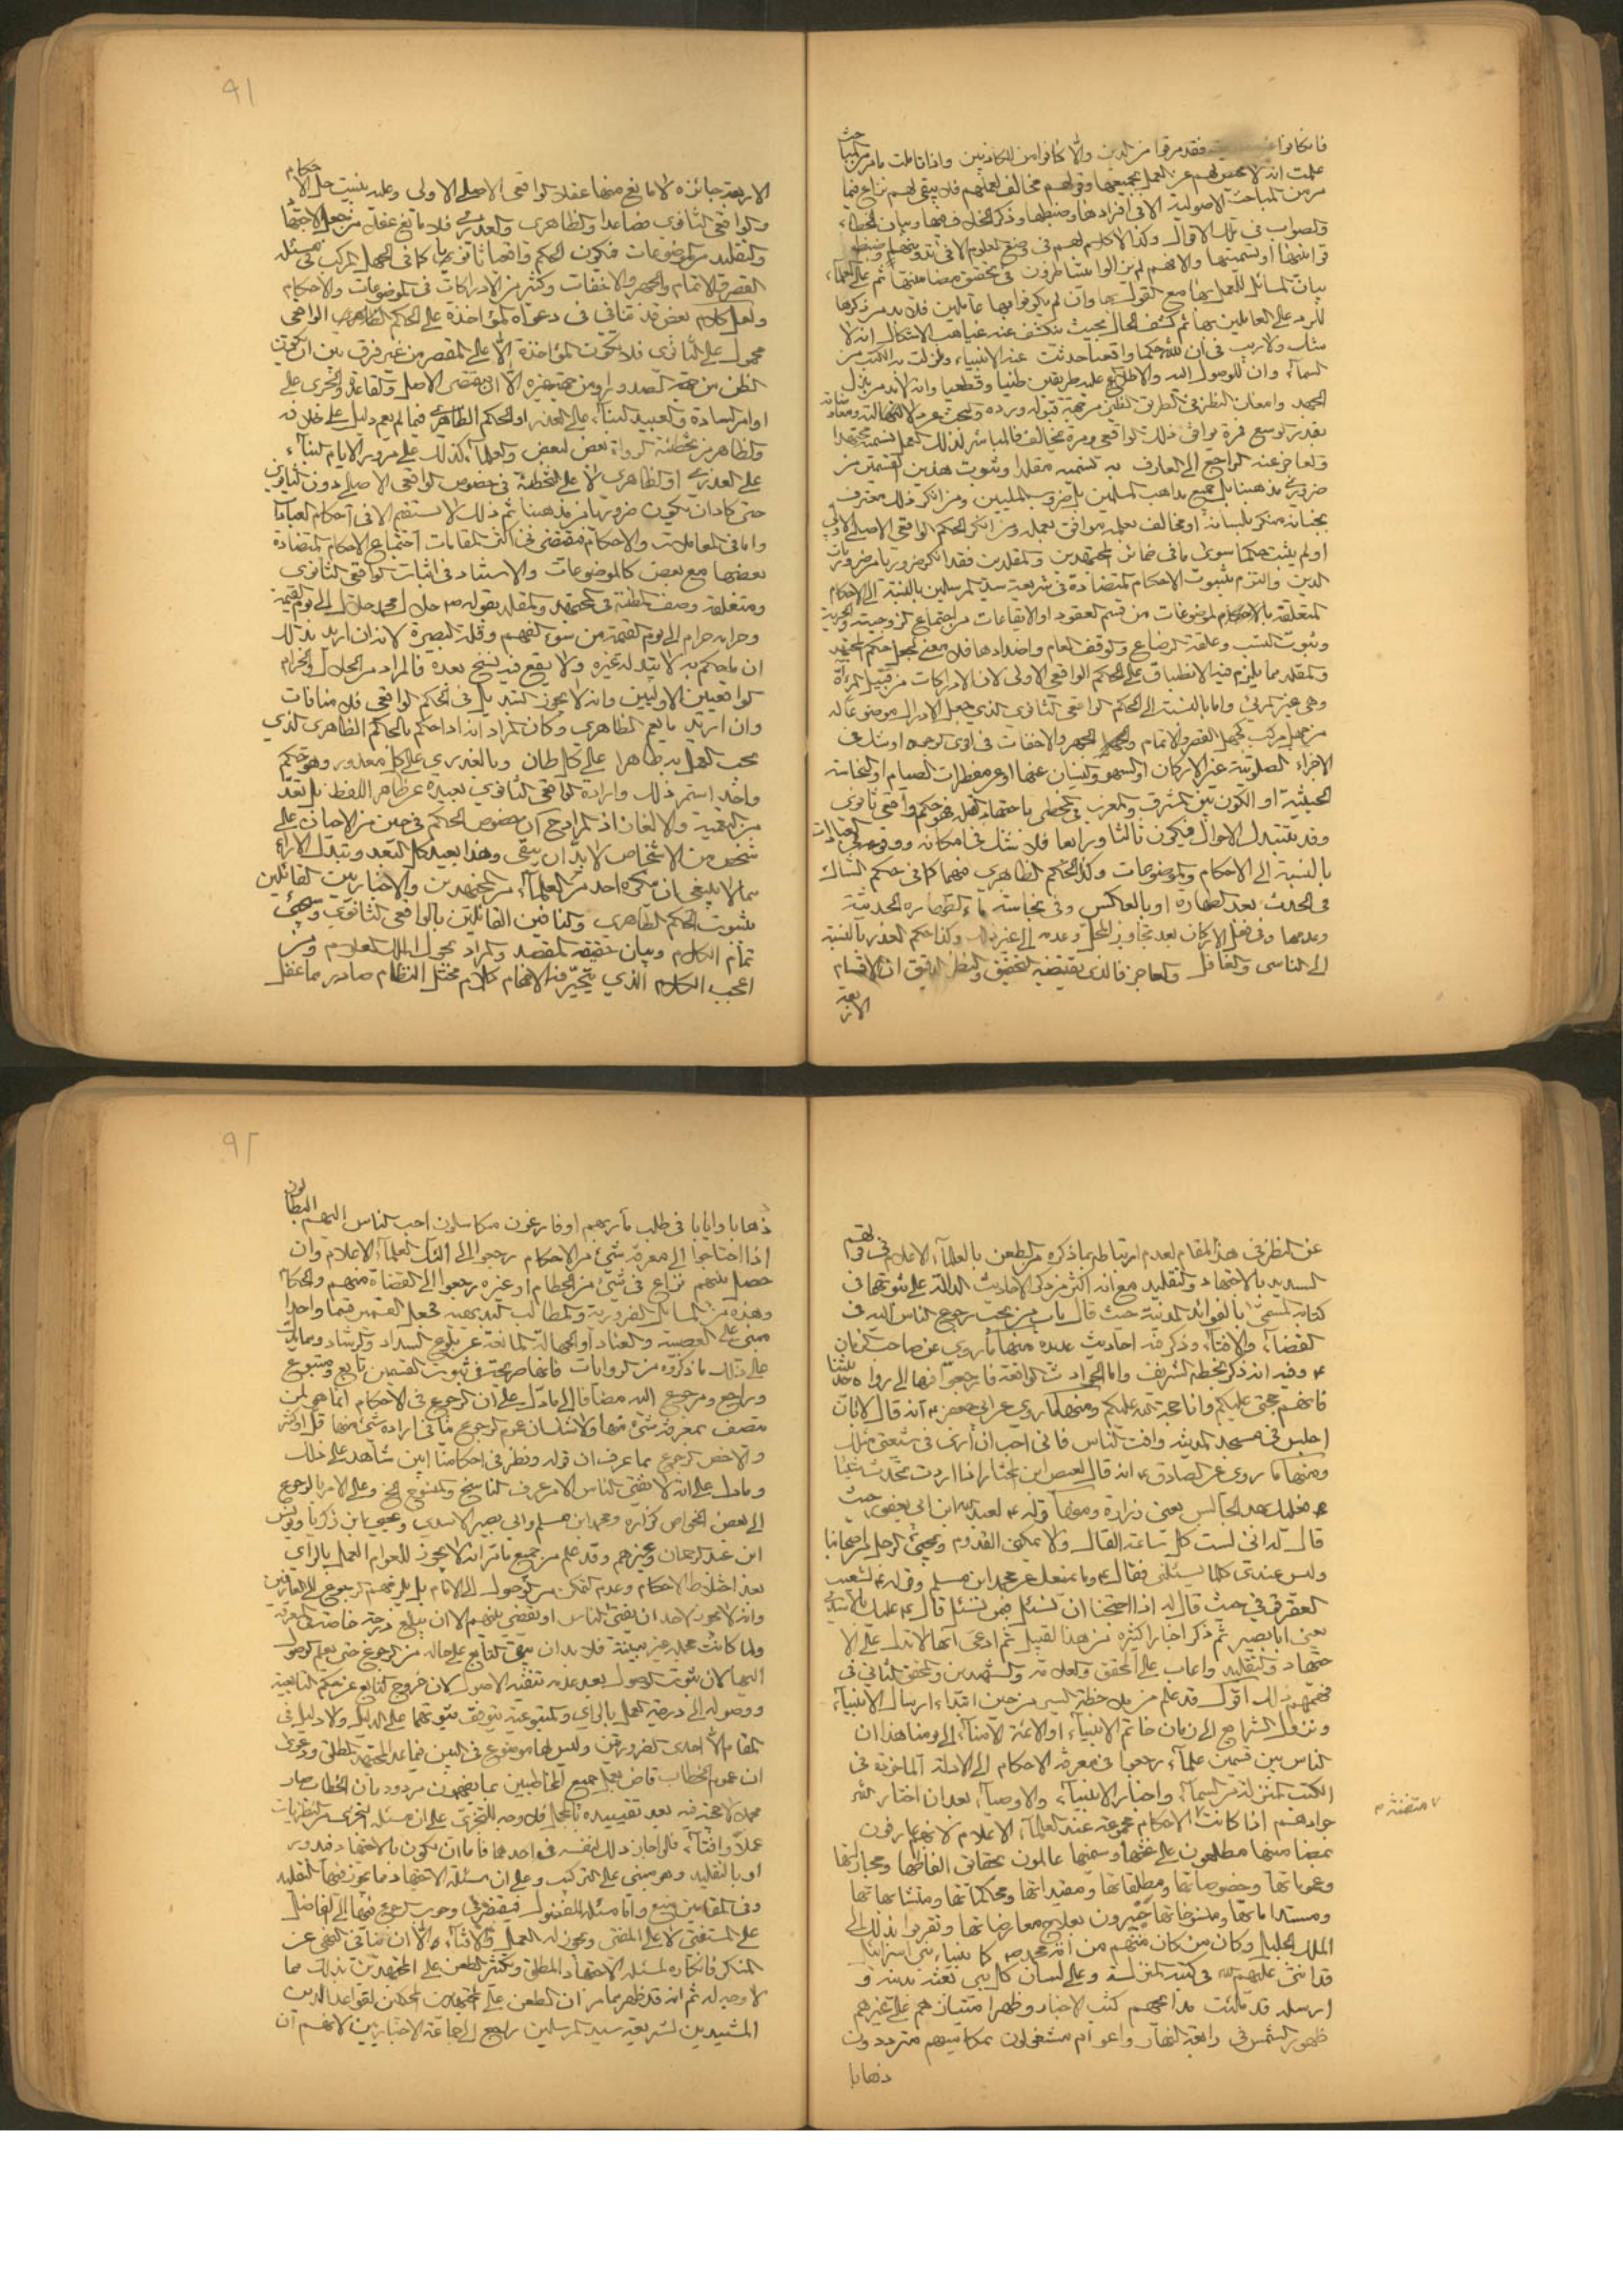 فان كانوا فقد مرقوا من الدين والا كانوا من الكاذبين واذا تاملت ما مر من المباحث
علمت انه لا محيص لهم عن العمل بجميعها وقولهم مخالف لعملهم فلا يبقى لهم نزاع فيما
مر من المباحث الاصولية الا في افرادها وضبطها وذكر الخلاف فيها وبيان الخطاء
والصواب في تلك الاقوال وكذا لا كلام لهم في وضع العلوم الا في تدوينهم وضبط
قوانينها او تسميتها والا فهم لم يزالوا يتشاطرون في تحقيق مضامينها ثم على العلماء
بيان المسائل للعمل بها مع القول بها وان لم يكونوا بها عاملين فلا بد من ذكرها
للرد على العاملين بها ثم كشف الحال بحيث ينكشف عنه غياهب الاشكال انه لا
شك ولا ريب في ان لله حكما واقعيا حدثت عنه الانبياء ونزلت به الكتب من
السماء وان للوصول اليه والاطلاع عليه طريقين ظنيا وقطعيا وانه لا بد من بذل
الجهد وامعان النظر في الطريق الظني من جهة قبوله ورده والبحث عن دلالته
بقدر الوسع فمرة يوافق ذلك الواقعي ومرة يخالف فالمباشر لذلك العمل نسميه مجتهدا
والعاجز عنه الراجع الى العارف به نسميه مقلدا وثبوت هذين القسمين من
ضروري مذهبنا بل جميع مذاهب المسلمين بل ضروب المليين ومن انكر ذلك معترف
بجنانه منكر بلسانه او مخالف بعلمه موافق بعمله ومن انكر الحكم الواقعي الاصلي الاولي
او لم يثبت حكما سوى ما في ضمائر المجتهدين والمقلدين فقد انكر ضروريا من ضروريات
الدين والتزم بثبوت الاحكام المتضادة في شريعة سيد المرسلين بالنسبة الى الاحكام
المتعلقة بالاحكام لموضوعات من قسم العقود او الايقاعات من اجتماع الزوجية والحرية
وثبوت النسب وعلقة الرضاع والوقف العام واضدادها فلا معنى لجعل حكم المجتهد
والمقلد مما يلزم فيه الانطباق على الحكم الواقعي الاولي لان الادراكات من قبيل المرآة
وهي غير المرئي واما بالنسبة الى الحكم الواقعي الثانوي الذي جعل الادراك موضوعا له
من جهل مركب كجهل القصر والاتمام والجهر والاخفات في اقوى الوجوه او شك في
الاجزاء الصلوتية غير الاركان او السهو والنسيان عنها او عن مفطرات الصيام او النجاسة
الخبثية او الكون بين المشرق والمغرب في المخطي باجتهاد القبلة فهو حكم واقعي ثانوي
وقد يتبدل الاحوال فيكون ثالثا ورابعا فلا شك في امكانه ووقوعه في العبادات
بالنسبة الى الاحكام والموضوعات وكذا الحكم الظاهري فيهما كما في حكم الشاك
في الحدث بعد الطهارة او بالعكس وفي نجاسة ماء الطهارة الحدثية
وعدمها وفي فعل الاركان بعد تجاوز المحل وعدمه الى غير ذلك وكذا حكم العذر بالنسبة
الى الناسي والغافل والعاجز فالذي يقتضيه التحقيق والنظر الدقيق ان الاقسام
الاربعة
٩١
الاربعة جائزة لا مانع منها عقلا الواقعي الاصلي الاولى وعليه يبتنى جل الاحكام
والواقعي الثانوي فصاعدا والظاهري والعذري فلا مانع عقلا من جعل الاجتهاد
والتقليد من الموضوعات فيكون الحكم واقعيا ثانويا كما في الجهل المركب في مسئلة
القصر والاتمام والجهر والاخفات وكثير من الادراكات في الموضوعات والاحكام
ولعل كلام بعض قد تنافي في دعواه المؤاخذة على الحاكم الظاهري الواقعي
محمول على الثانوي فلا يكون المؤاخذة الا على المقصر من غير فرق بين ان يكون
الظن من جهة الصدور او من جهة غيره الا ان مقتضى الاصل والقاعدة والجري على
اوامر السادة والعبيد البناء على العذر او الحكم الظاهري فيما لم يقم دليل على خلافه
والظاهر من تخطئة الرواة بعض لبعض والعلماء كذلك على مرور الايام البناء
على العذري او الظاهري لا على التخطئة في خصوص الواقعي الاصلي دون الثانوي
حتى كاد ان يكون ضروريا من مذهبنا ثم ذلك لا يستقيم الا في احكام العبادات
واما في المعاملات والاحكام فيقتضي في اكثر المقامات اجتماع الاحكام المتضادة
بعضها مع بعض كالموضوعات والاستناد في اثبات الواقعي الثانوي
ومتعلقة وصف الظنية في المجتهد والمقلد بقوله ص حلال محمد حلال الى يوم القيمة
وحرامه حرام الى يوم القيمة من سوء الفهم وقلة البصيرة لانه ان اريد بذلك
ان ما حكم به لا يتبدل بغيره ولا يقع فيه نسخ بعده فالمراد من الحلال والحرام
الواقعيين الاوليين وانه لا يجوز التبديل في الحكم الواقعي فلا منافات
وان اريد ما يعم الظاهري وكان المراد انه اذا حكم الحاكم بالحكم الظاهري الذي
يجب العمل به ظاهرا على كل ظان وبالعذري على كل معذور وهو حكم
واحد استمر ذلك وارادة الواقعي الثانوي بعيدة عن ظاهر اللفظ بل تعد
من التعمية والالغاز اذ المراد ح ان خصوص الحكم في حين من الاحيان على
شخص من الاشخاص لا بد ان يبقى وهذا بعيد كل البعد وتبدل الآراء
مما لا ينبغي ان ينكره احد من العلماء من المجتهدين والاخباريين القائلين
بثبوت الحكم الظاهري والنافين القائلين بالواقعي الثانوي وسيجيء
تمام الكلام وبيان حقيقة المقصد والمراد بحول الملك العلام ومن
اعجب الكلام الذي يتحير منه الافهام كلام مختل النظام صادر مما غفل
عن النظر في هذا المقام لعدم ارتباطه بما ذكره من الطعن بالعلماء الاعلام في قولهم
السديد بالاجتهاد والتقليد مع انه اكثر من ذكر الاحاديث الدالة على ثبوتهما في
كتابه المسمى بالفوائد المدنية حيث قال باب من يجب رجوع الناس اليه في
القضاء والافتاء وذكر فيه احاديث عديدة منها ما روي عن صاحب الزمان
ع وفيه انه ذكر بخطه الشريف واما الحوادث الواقعة فارجعوا فيها الى رواة حديثنا
فانهم حجتي عليكم وانا حجة الله عليكم ومنها ما روي عن ابي جعفر ع انه قال لابان
اجلس في مسجد المدينة وافت الناس فاني احب ان أرى في شيعتي مثلك
ومنها ما روي عن الصادق ع انه قال لفيض ابن المختار اذا اردت بحديثنا
فعليك بهذا الجالس يعني زرارة ومنها قوله ع لعبد الله ابن ابي يعفور حيث
قال له اني لست كل ساعة القاك ولا يمكن القدوم ويجيء الرجل من اصحابنا
وليس عندي كلما يسئلني فقال ع وما يمنعك عن محمد ابن مسلم وقوله ع لشعيب
العقرقوفي حيث قال له اذا احتجنا ان نسئل فمن نسئل قال ع عليك بالاسدي
يعني ابا بصير ثم ذكر اخبارا كثيرة من هذا القبيل ثم ادعى انها لا تدل على الا
جتهاد والتقليد واعاب على المحقق والعلامة والشهيدين والمحقق الثاني في
فهمهم ذلك اقول قد علم من ملاحظة السير من حين ابتداء ارسال الانبياء
ونزول الشرايع الى زمان خاتم الانبياء او الائمة الامناء الى يومنا هذا ان
الناس بين قسمين علماء رجعوا في معرفة الاحكام الى الادلة المأخوذة في
الكتب المنزلة من السماء واخبار الانبياء والاوصياء بعد ان اختار الله
جوادهم اذا كانت الاحكام مجموعة عند العلماء الاعلام لانهم عارفون
بمضامينها مطلعون على غثها وسمينها عالمون بحقائق الفاظها ومجازاتها
وعموماتها وخصوصاتها ومطلقاتها ومقيداتها ومحكماتها ومتشابهاتها
ومستداماتها ومنسوخاتها خبيرون بعلاج معارضاتها وتقربوا بذلك الى
الملك الجليل وكان من كان منهم من امة محمد ص كانبياء بني اسرائيل
قد اثنى عليهم الله في كتبه المنزلة وعلى لسان كل نبي بعثه بدينه و
ارسله قد ملئت مدائحهم كتب الاخبار وظهر امتيازهم على غيرهم
ظهور الشمس في رابعة النهار واعوام مشغولون بمكاسبهم مترددون
ذهابا
٩٢
ذهابا وايابا في طلب مآربهم او فارغون متكاسلون احب الناس اليهم البطالون
اذا احتاجوا الى معرفة شيء من الاحكام رجعوا الى اولئك العلماء الاعلام وان
حصل بينهم نزاع في شيء من الحطام او غيره رجعوا الى القضاة منهم والحكام
وهذه من المسائل الضرورية والمطالب البديهية فجعل القسمين قسما واحدا
مبني على العصبية والعناد او الجهالة المانعة عن بلوغ السداد والرشاد ومما يدل
على ذلك ما ذكروه من الروايات فانها صريحة في ثبوت القسمين تابع ومتبوع
وراجع ومرجوع اليه مضافا الى ما دل على ان الرجوع في الاحكام انما هي لمن
متصف بمعرفة شيء منها ولا شك ان عموم الرجوع ينافي ارادة شيء منها قل او كثر
والاخص الرجوع بما عرف ان قوله ونظر في احكامنا ابين شاهد على ذلك
وما دل على انه لا يفتي الناس الا من عرف الناسخ والمنسوخ الخ وعلى الامر بالرجوع
الى بعض الخواص كزرارة ومحمد ابن مسلم وابي بصير الاسدي ويحيى ابن زكريا ويونس
ابن عبد الرحمان وغيرهم وقد علم من جميع ما مر انه لا يجوز للعوام العمل بالراي
بعد اختلاط الاحكام وعدم تمكن من الوصول الى الامام بل يلزمهم الرجوع الى العارفين
وانه لا يجوز لاحد ان يفتي الناس او يقضي بينهم الا ان يبلغ درجة خاصة
ولما كانت مجملة غير مبينة فلا بد ان يبقى التابع على حاله من الرجوع حتى يعلم الوصول
اليها لان ثبوت الوصول بعد عدمه تنفيه الاصول لان خروج التابع عن حكم التابعية
ووصوله الى درجة العمل بالراي والمتبوعية يتوقف ثبوتهما على الدليل ولا دليل في
المقام الا احدى الضرورتين وليس لها موضوع في البين فيما عدا المجتهد المطلق ودعوى
ان عموم الخطاب قاض بعمل جميع المخاطبين بما يفهمون مردود بان الخطاب صار
مجملا لا حجة فيه بعد تقييده بالمجمل فلا وجه للتجزي على ان مسئلة التجزي من النظريات
عملا وافتاء فلو اجاز ذلك لنفسه في احدهما فاما ان يكون بالاجتهاد فدور
او بالتقليد وهو مبني على التركيب وعلى ان مسئلة الاجتهاد مما يجوز فيها التقليد
وفي المقامين منع واما مسئلة المفضول فيقتضي وجوب الرجوع فيها الى الفاضل
على المستفتي لا على المفتي ويجوز له العمل والافتاء والا ان ينافي النهي عن
المنكر فانكاره لمسئلة الاجتهاد المطلق وتكثير الطعن على المجتهدين بذلك مما
لا وجه له ثم انه قد ظهر مما مر ان الطعن على المجتهدين المحكمين لقواعد الدين
المشيدين لشريعة سيد المرسلين راجع الى جماعة الاخباريين لانهم ان